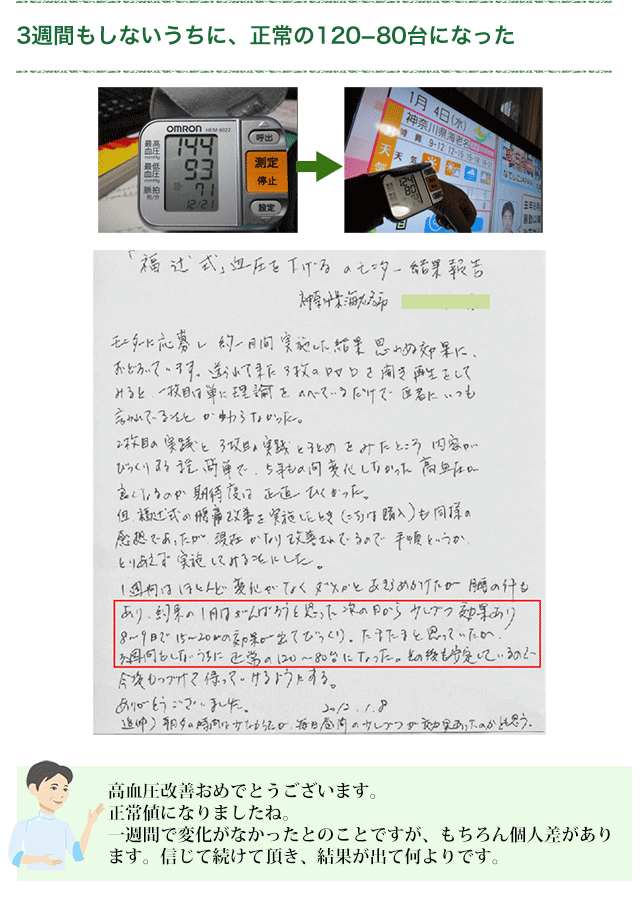 3週間もしないうちに、正常の120–80台になった
OMRON HEM-6022
最高血圧 mmHg 144
最低血圧 mmHg 93
脈拍 拍/分 71
12/21
呼出
測定
停止
設定
1月 4日(水)
神奈川県海老名
天気
124
80
「福辻式」血圧を下げるのモニター結果報告
神奈川県海老名市
モニターに応募し約一ヶ月間実施した結果 思わぬ効果に、
おどろいています。送られて来た3枚のDVDを開き再生をして
みると、一枚目は単に理論をのべているだけで 医者にいつも
言われていることとかわらなかった。
2枚目の実践と3枚目の実践とまとめをみたところ 内容が
びっくりする程 簡単で、5年もの間変化しなかった高血圧が
良くなるのか 期待度は正直ひくかった。
但、福辻式の腰痛改善を実施したとき(こちらは購入)も同様の
感想であったが 現在かなり改善されているので 半信というか、
とりあえず実施してみることにした。
1週間はほとんど変化がなく ダメかとあきらめかけたが 腰の件も
あり、約束の1ヶ月はがんばろうと思った次の日から 少しづつ効果あり
8〜9日で15〜20mmの効果が出てびっくり。たまたまと思っていたが、
3週間もしないうちに 正常の120〜80台になった。その後も安定しているので
今後もつづけて保っていけるようにする。
ありがとうございました。 2012.1.8
追伸)
高血圧改善おめでとうございます。
正常値になりましたね。
一週間で変化がなかったとのことですが、もちろん個人差があり
ます。信じて続けて頂き、結果が出て何よりです。